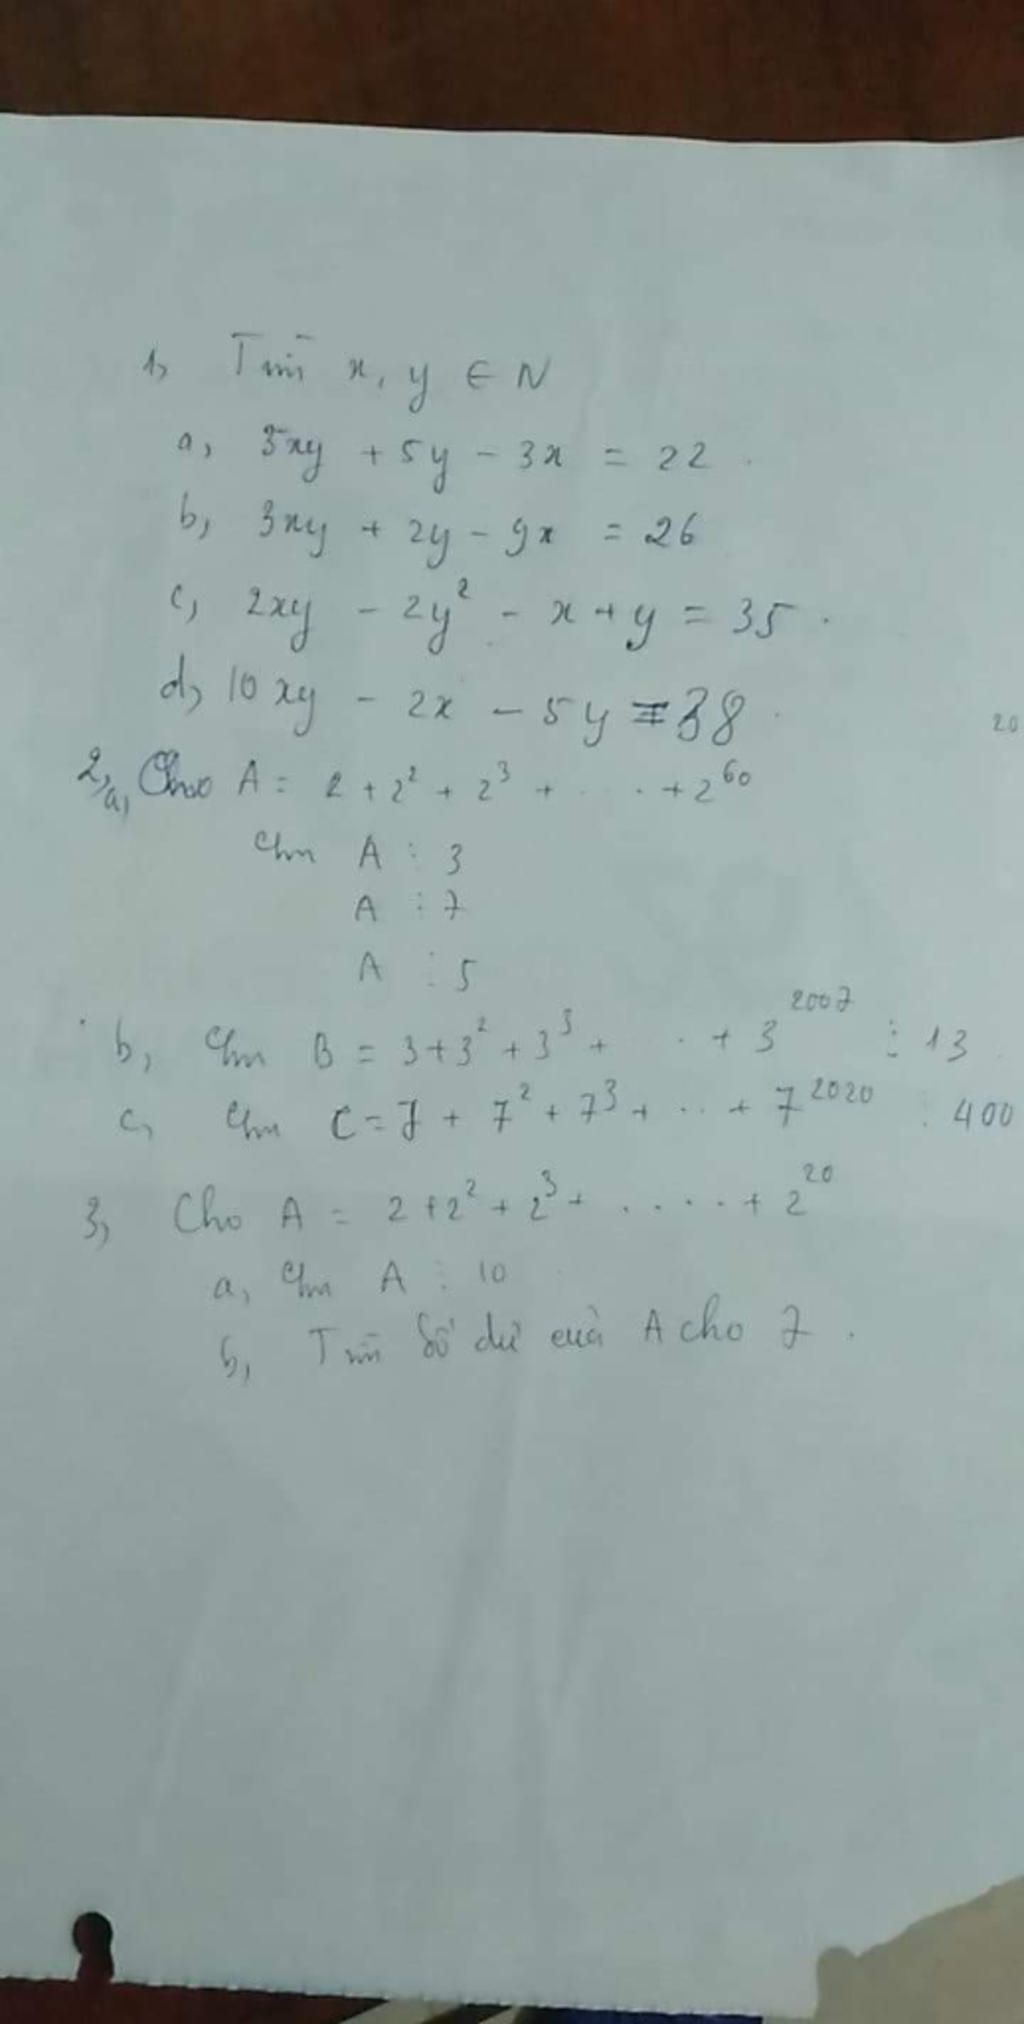 1, Tìm x, y ∈ N
a, 5xy + 5y - 3x = 22.
b, 3xy + 2y - 9x = 26
c, 2xy - 2y² - x + y = 35.
d, 10xy - 2x - 5y = 38.
20
2, a, Cho A = 2 + 2² + 2³ + .... + 2⁶⁰
Cm A ⋮ 3
A ⋮ 7
A ⋮ 5
b, Cm B = 3 + 3² + 3³ + .. + 3²⁰⁰⁷ ⋮ 13.
c, Cm C = 7 + 7² + 7³ + .. + 7²⁰²⁰ ⋮ 400
3, Cho A = 2 + 2² + 2³ + ..... + 2²⁰
a, Cm A ⋮ 10
b, Tìm số dư của A cho 7.